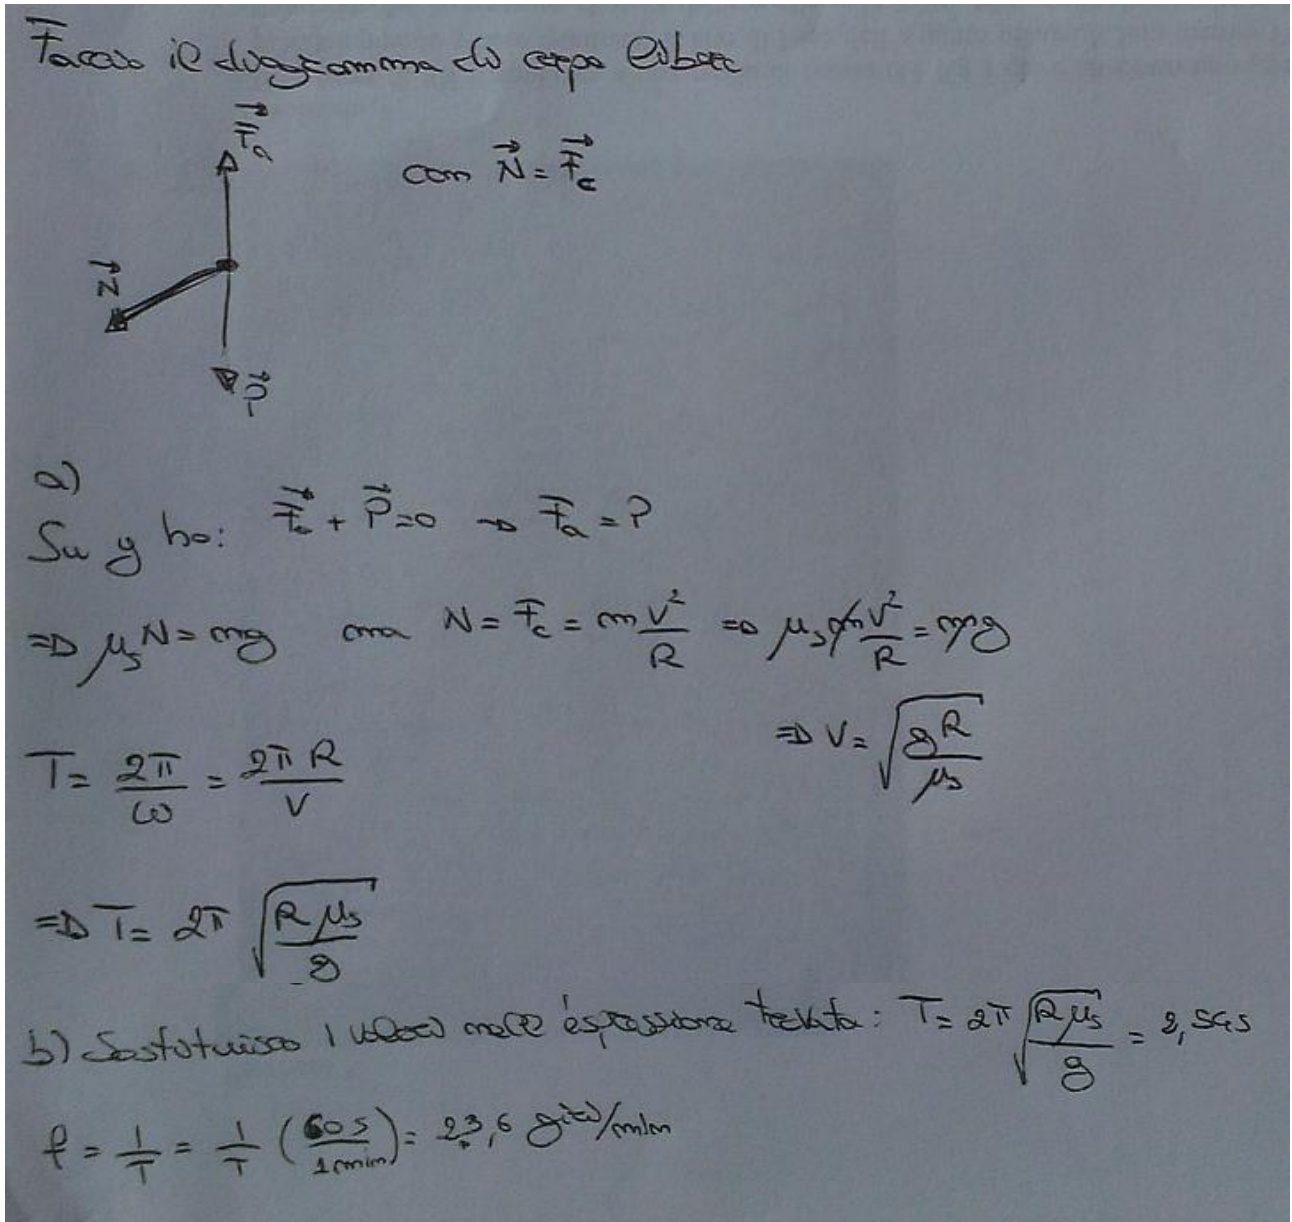 Faccio il diagramma di corpo libero
F⃗a
con N⃗ = F⃗c
N⃗
P⃗
a)
Su y ho: F⃗a + P⃗ = 0 → Fa = P
⇒ μs N = mg ma N = Fc = m v²/R ⇒ μs m v²/R = mg
⇒ v = √(gR/μs)
T = 2π/ω = 2πR/v
⇒ T = 2π √(R μs/g)
b) Sostituisco i valori nell'espressione trovata: T = 2π √(R μs/g) = 2,54 s
f = 1/T = 1/T (60 s/1 min) = 23,6 giri/min